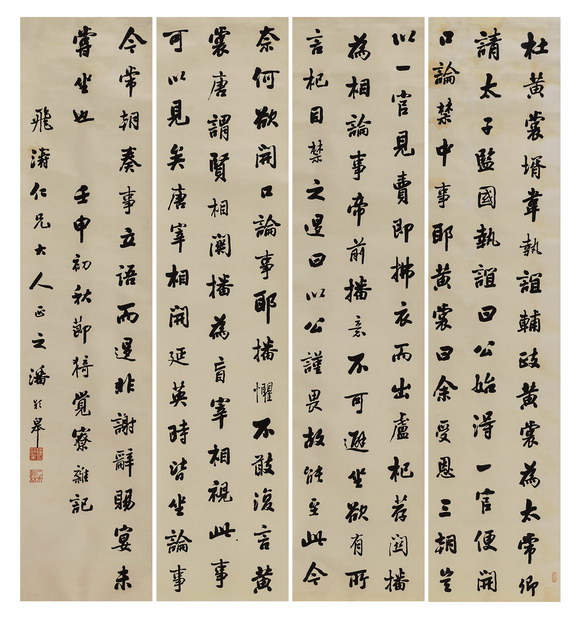 杜黄裳壻韋執誼輔政黄裳為太常卿
請太子監國執誼曰公始得一官便開
口論禁中事耶黄裳曰余受恩三朝豈
以一官見賣即拂衣而出盧杞荐関播
為相論事帝前播意不可避坐欲有所
言杞目禁之退曰以公謹畏故能至此今
奈何欲開口論事耶播懼不敢復言黄
裳唐謂賢相関播為盲宰相視此事
可以見矣唐宰相開延英時皆坐論事
今常朝奏事立語而退非謝辭賜宴未
嘗坐也 壬申初秋節猗覺寮雜記
飛濤仁兄大人正之潘齡皋